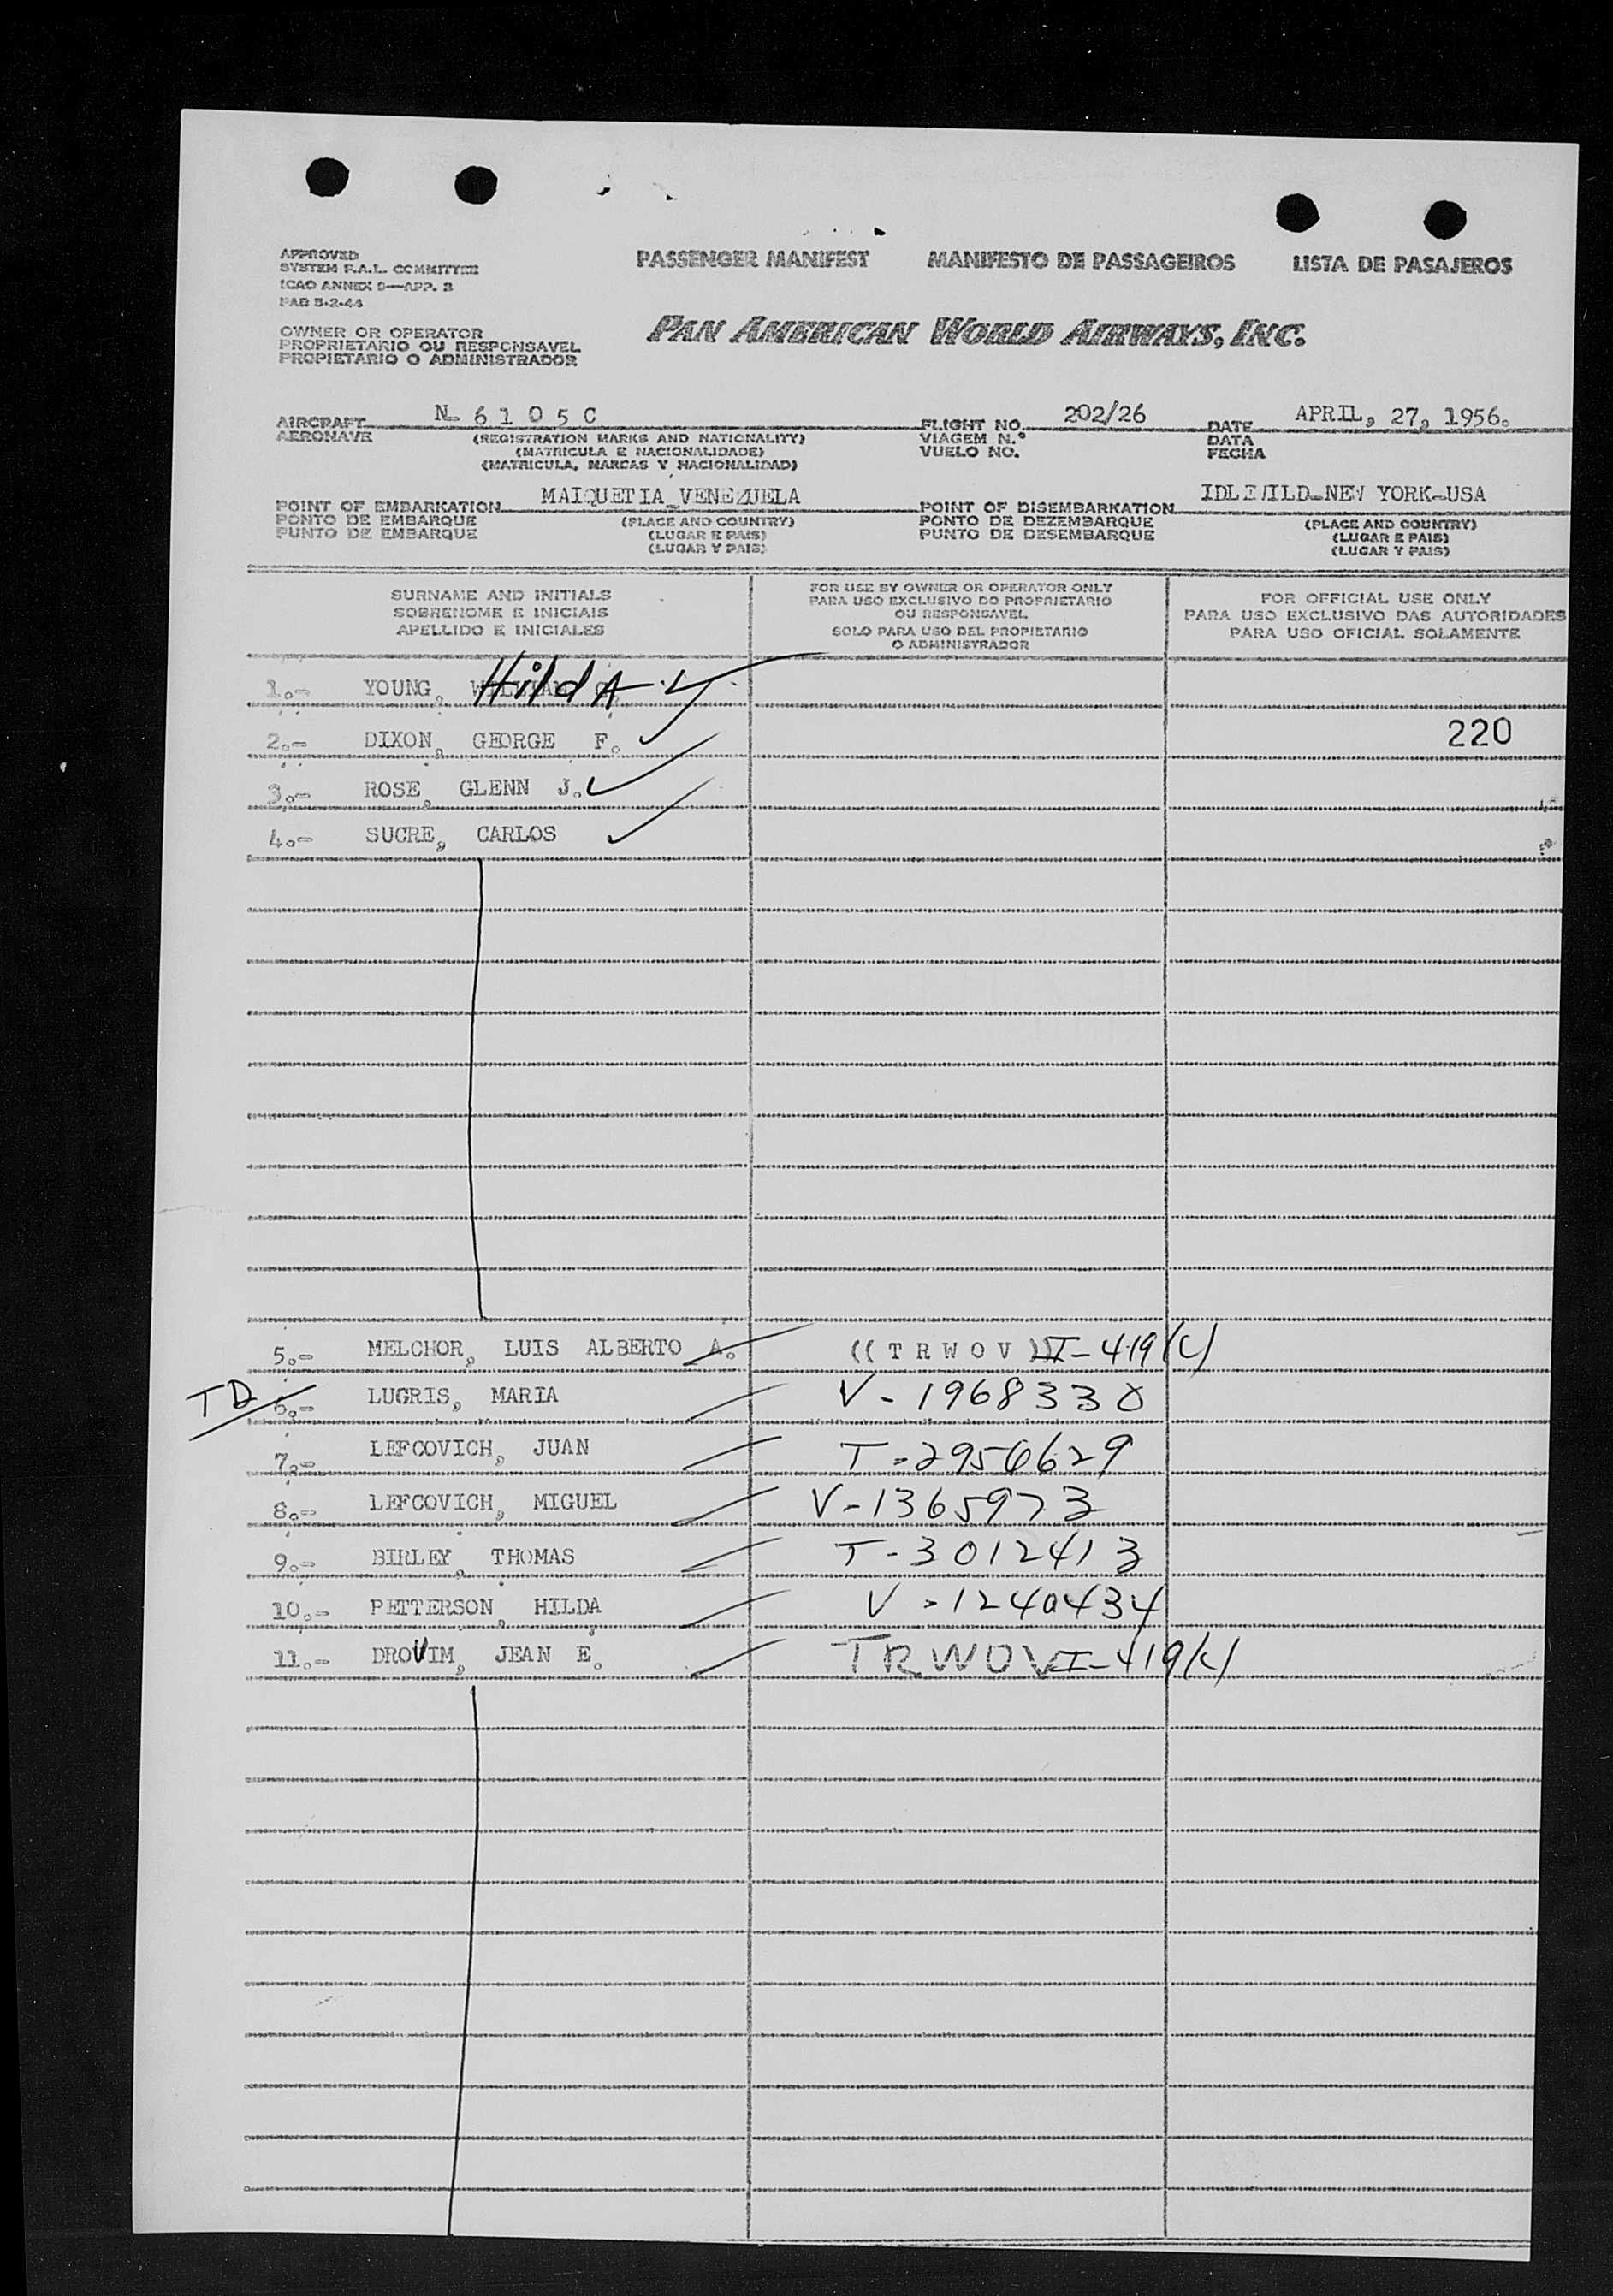 APPROVED
SYSTEM F.A.L. COMMITTEE
ICAO ANNEX 9—APP. 3
PAB 5-2-44
PASSENGER MANIFEST MANIFESTO DE PASSAGEIROS LISTA DE PASAJEROS
OWNER OR OPERATOR
PROPRIETARIO OU RESPONSAVEL
PROPIETARIO O ADMINISTRADOR
PAN AMERICAN WORLD AIRWAYS, INC.
AIRCRAFT N- 6 1 0 5 C FLIGHT NO. 202/26 DATE APRIL, 27, 1956.
AERONAVE (REGISTRATION MARKS AND NATIONALITY) VIAGEM N.º DATA
(MATRICULA E NACIONALIDADE) VUELO NO. FECHA
(MATRICULA, MARCAS Y NACIONALIDAD)
POINT OF EMBARKATION MAIQUETIA VENEZUELA POINT OF DISEMBARKATION IDLEWILD-NEW YORK-USA
PONTO DE EMBARQUE (PLACE AND COUNTRY) PONTO DE DEZEMBARQUE (PLACE AND COUNTRY)
PUNTO DE EMBARQUE (LUGAR E PAIS) PUNTO DE DESEMBARQUE (LUGAR E PAIS)
(LUGAR Y PAIS) (LUGAR Y PAIS)
SURNAME AND INITIALS
SOBRENOME E INICIAIS
APELLIDO E INICIALES
FOR USE BY OWNER OR OPERATOR ONLY
PARA USO EXCLUSIVO DO PROPRIETARIO
OU RESPONSAVEL
SOLO PARA USO DEL PROPIETARIO
O ADMINISTRADOR
FOR OFFICIAL USE ONLY
PARA USO EXCLUSIVO DAS AUTORIDADES
PARA USO OFICIAL SOLAMENTE
1.- YOUNG, HildA
2.- DIXON, GEORGE F. 220
3.- ROSE, GLENN J.
4.- SUCRE, CARLOS
5.- MELCHOR, LUIS ALBERTO A. (( T R W O V )) I-419(c)
TD 6.- LUGRIS, MARIA V-1968330
7.- LEFCOVICH, JUAN T-2956629
8.- LEFCOVICH, MIGUEL V-1365973
9.- BIRLEY, THOMAS T-3012413
10.- PETTERSON, HILDA V-1240434
11.- DROVIM, JEAN E. TRWOV I-419(c)